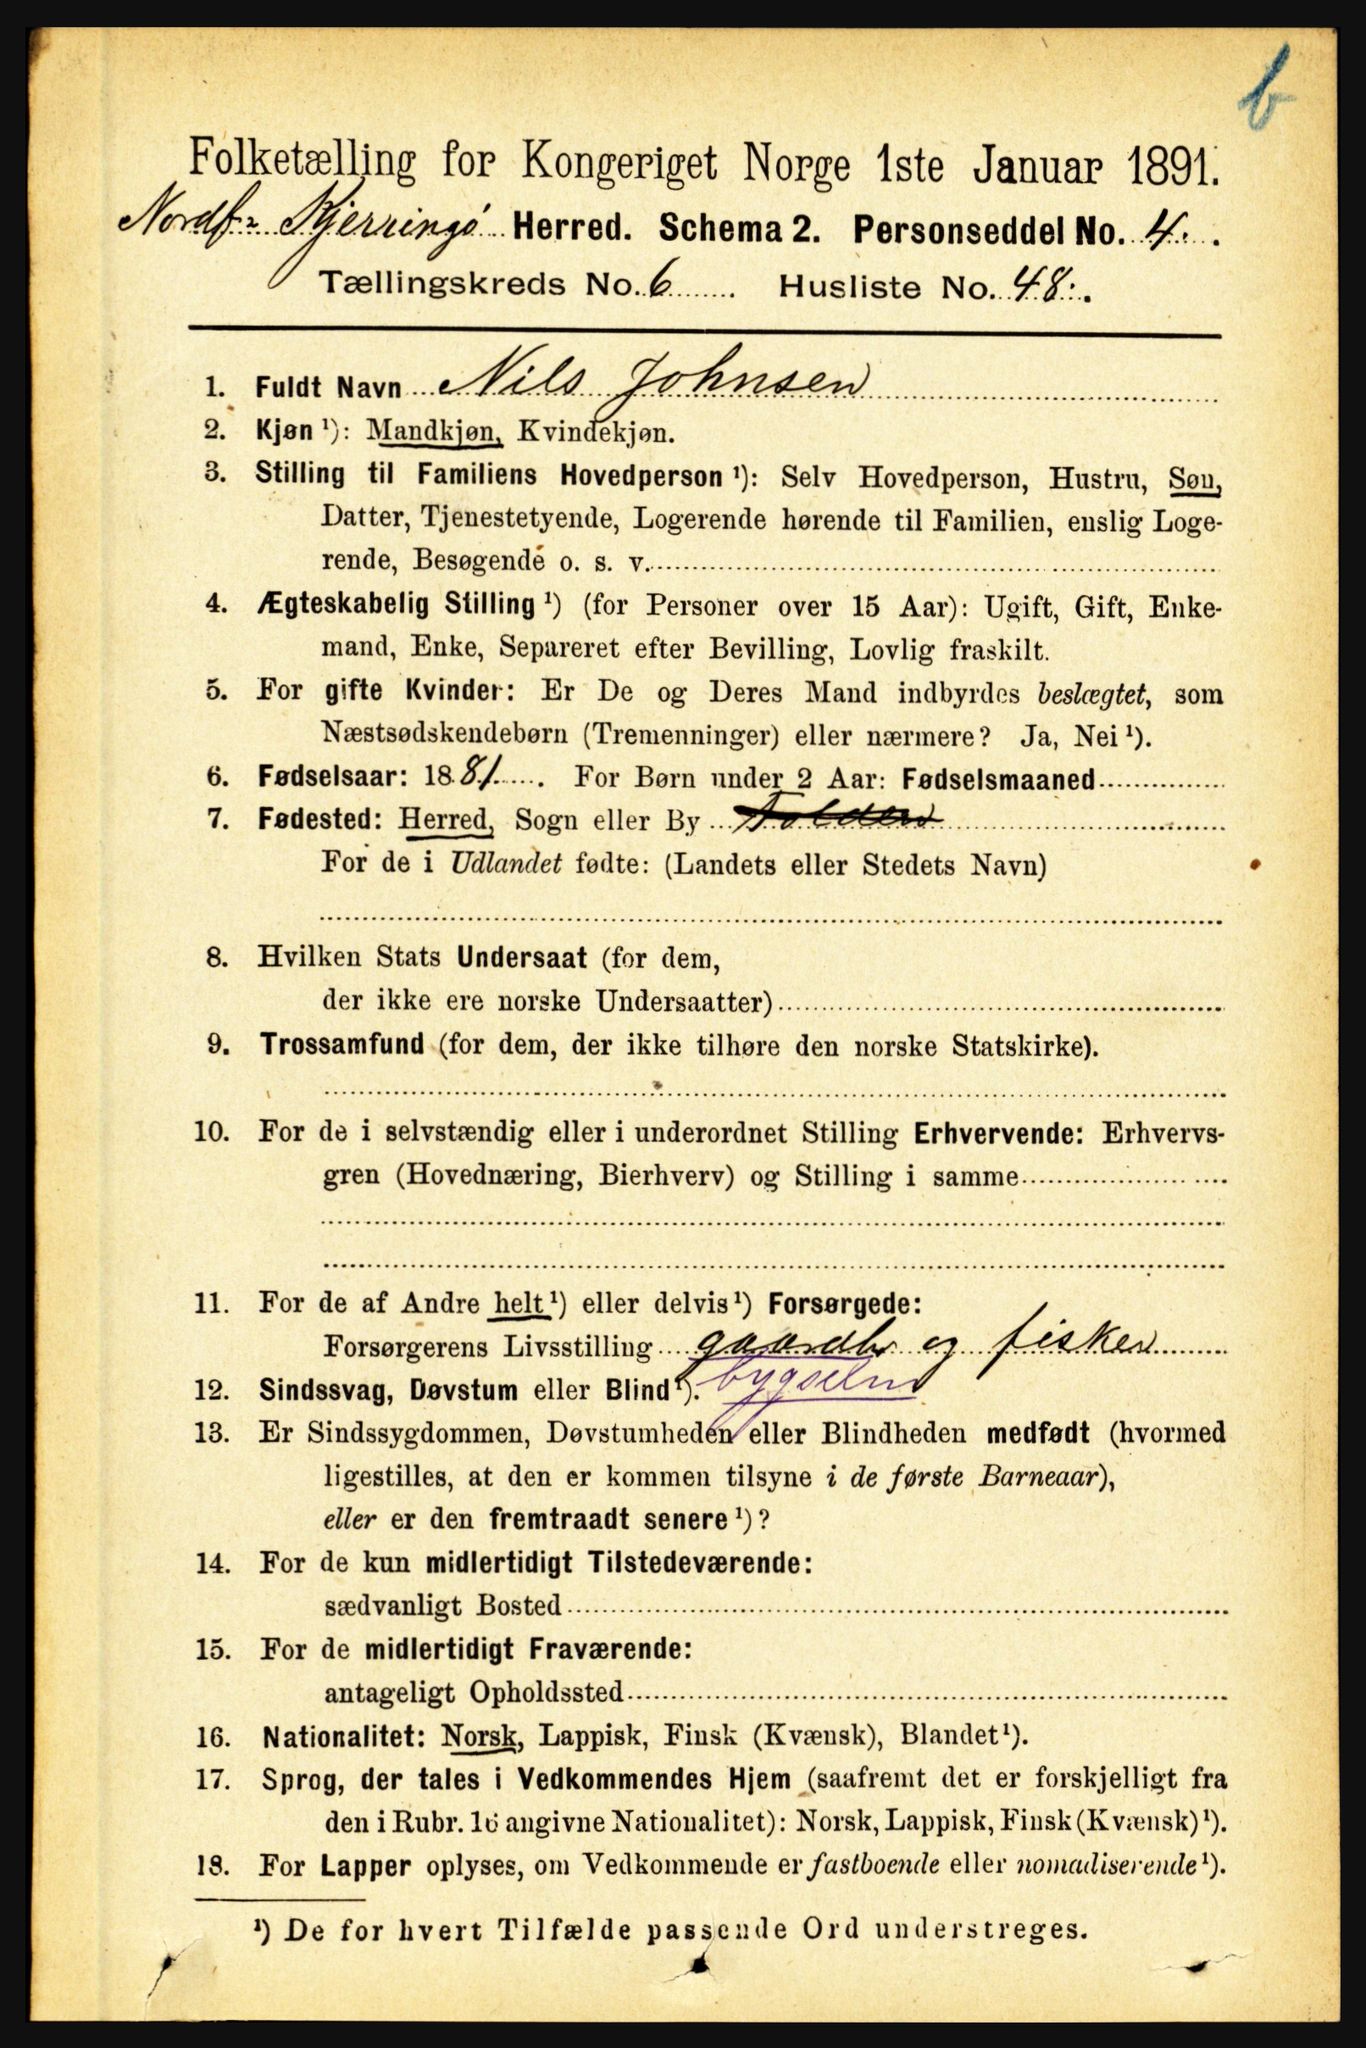 b
Folketælling for Kongeriget Norge 1ste Januar 1891.
Nordf: Kjerringø Herred. Schema 2. Personseddel No. 4.
Tællingskreds No. 6 Husliste No. 48.
1. Fuldt Navn Nils Johnsen
2. Kjøn ¹): Mandkjøn, Kvindekjøn.
3. Stilling til Familiens Hovedperson ¹): Selv Hovedperson, Hustru, Søn,
Datter, Tjenestetyende, Logerende hørende til Familien, enslig Loge-
rende, Besøgende o. s. v.
4. Ægteskabelig Stilling ¹) (for Personer over 15 Aar): Ugift, Gift, Enke-
mand, Enke, Separeret efter Bevilling, Lovlig fraskilt.
5. For gifte Kvinder: Er De og Deres Mand indbyrdes beslægtet, som
Næstsødskendebørn (Tremenninger) eller nærmere? Ja, Nei ¹).
6. Fødselsaar: 1881. For Børn under 2 Aar: Fødselsmaaned
7. Fødested: Herred, Sogn eller By Folden
For de i Udlandet fødte: (Landets eller Stedets Navn)
8. Hvilken Stats Undersaat (for dem,
der ikke ere norske Undersaatter)
9. Trossamfund (for dem, der ikke tilhøre den norske Statskirke).
10. For de i selvstændig eller i underordnet Stilling Erhvervende: Erhvervs-
gren (Hovednæring, Bierhverv) og Stilling i samme
11. For de af Andre helt ¹) eller delvis ¹) Forsørgede:
Forsørgerens Livsstilling gaardbr og fisker
12. Sindssvag, Døvstum eller Blind ¹). bygselm
13. Er Sindssygdommen, Døvstumheden eller Blindheden medfødt (hvormed
ligestilles, at den er kommen tilsyne i de første Barneaar),
eller er den fremtraadt senere ¹)?
14. For de kun midlertidigt Tilstedeværende:
sædvanligt Bosted
15. For de midlertidigt Fraværende:
antageligt Opholdssted
16. Nationalitet: Norsk, Lappisk, Finsk (Kvænsk), Blandet ¹).
17. Sprog, der tales i Vedkommendes Hjem (saafremt det er forskjelligt fra
den i Rubr. 16 angivne Nationalitet): Norsk, Lappisk, Finsk (Kvænsk) ¹).
18. For Lapper oplyses, om Vedkommende er fastboende eller nomadiserende ¹).
¹) De for hvert Tilfælde passende Ord understreges.